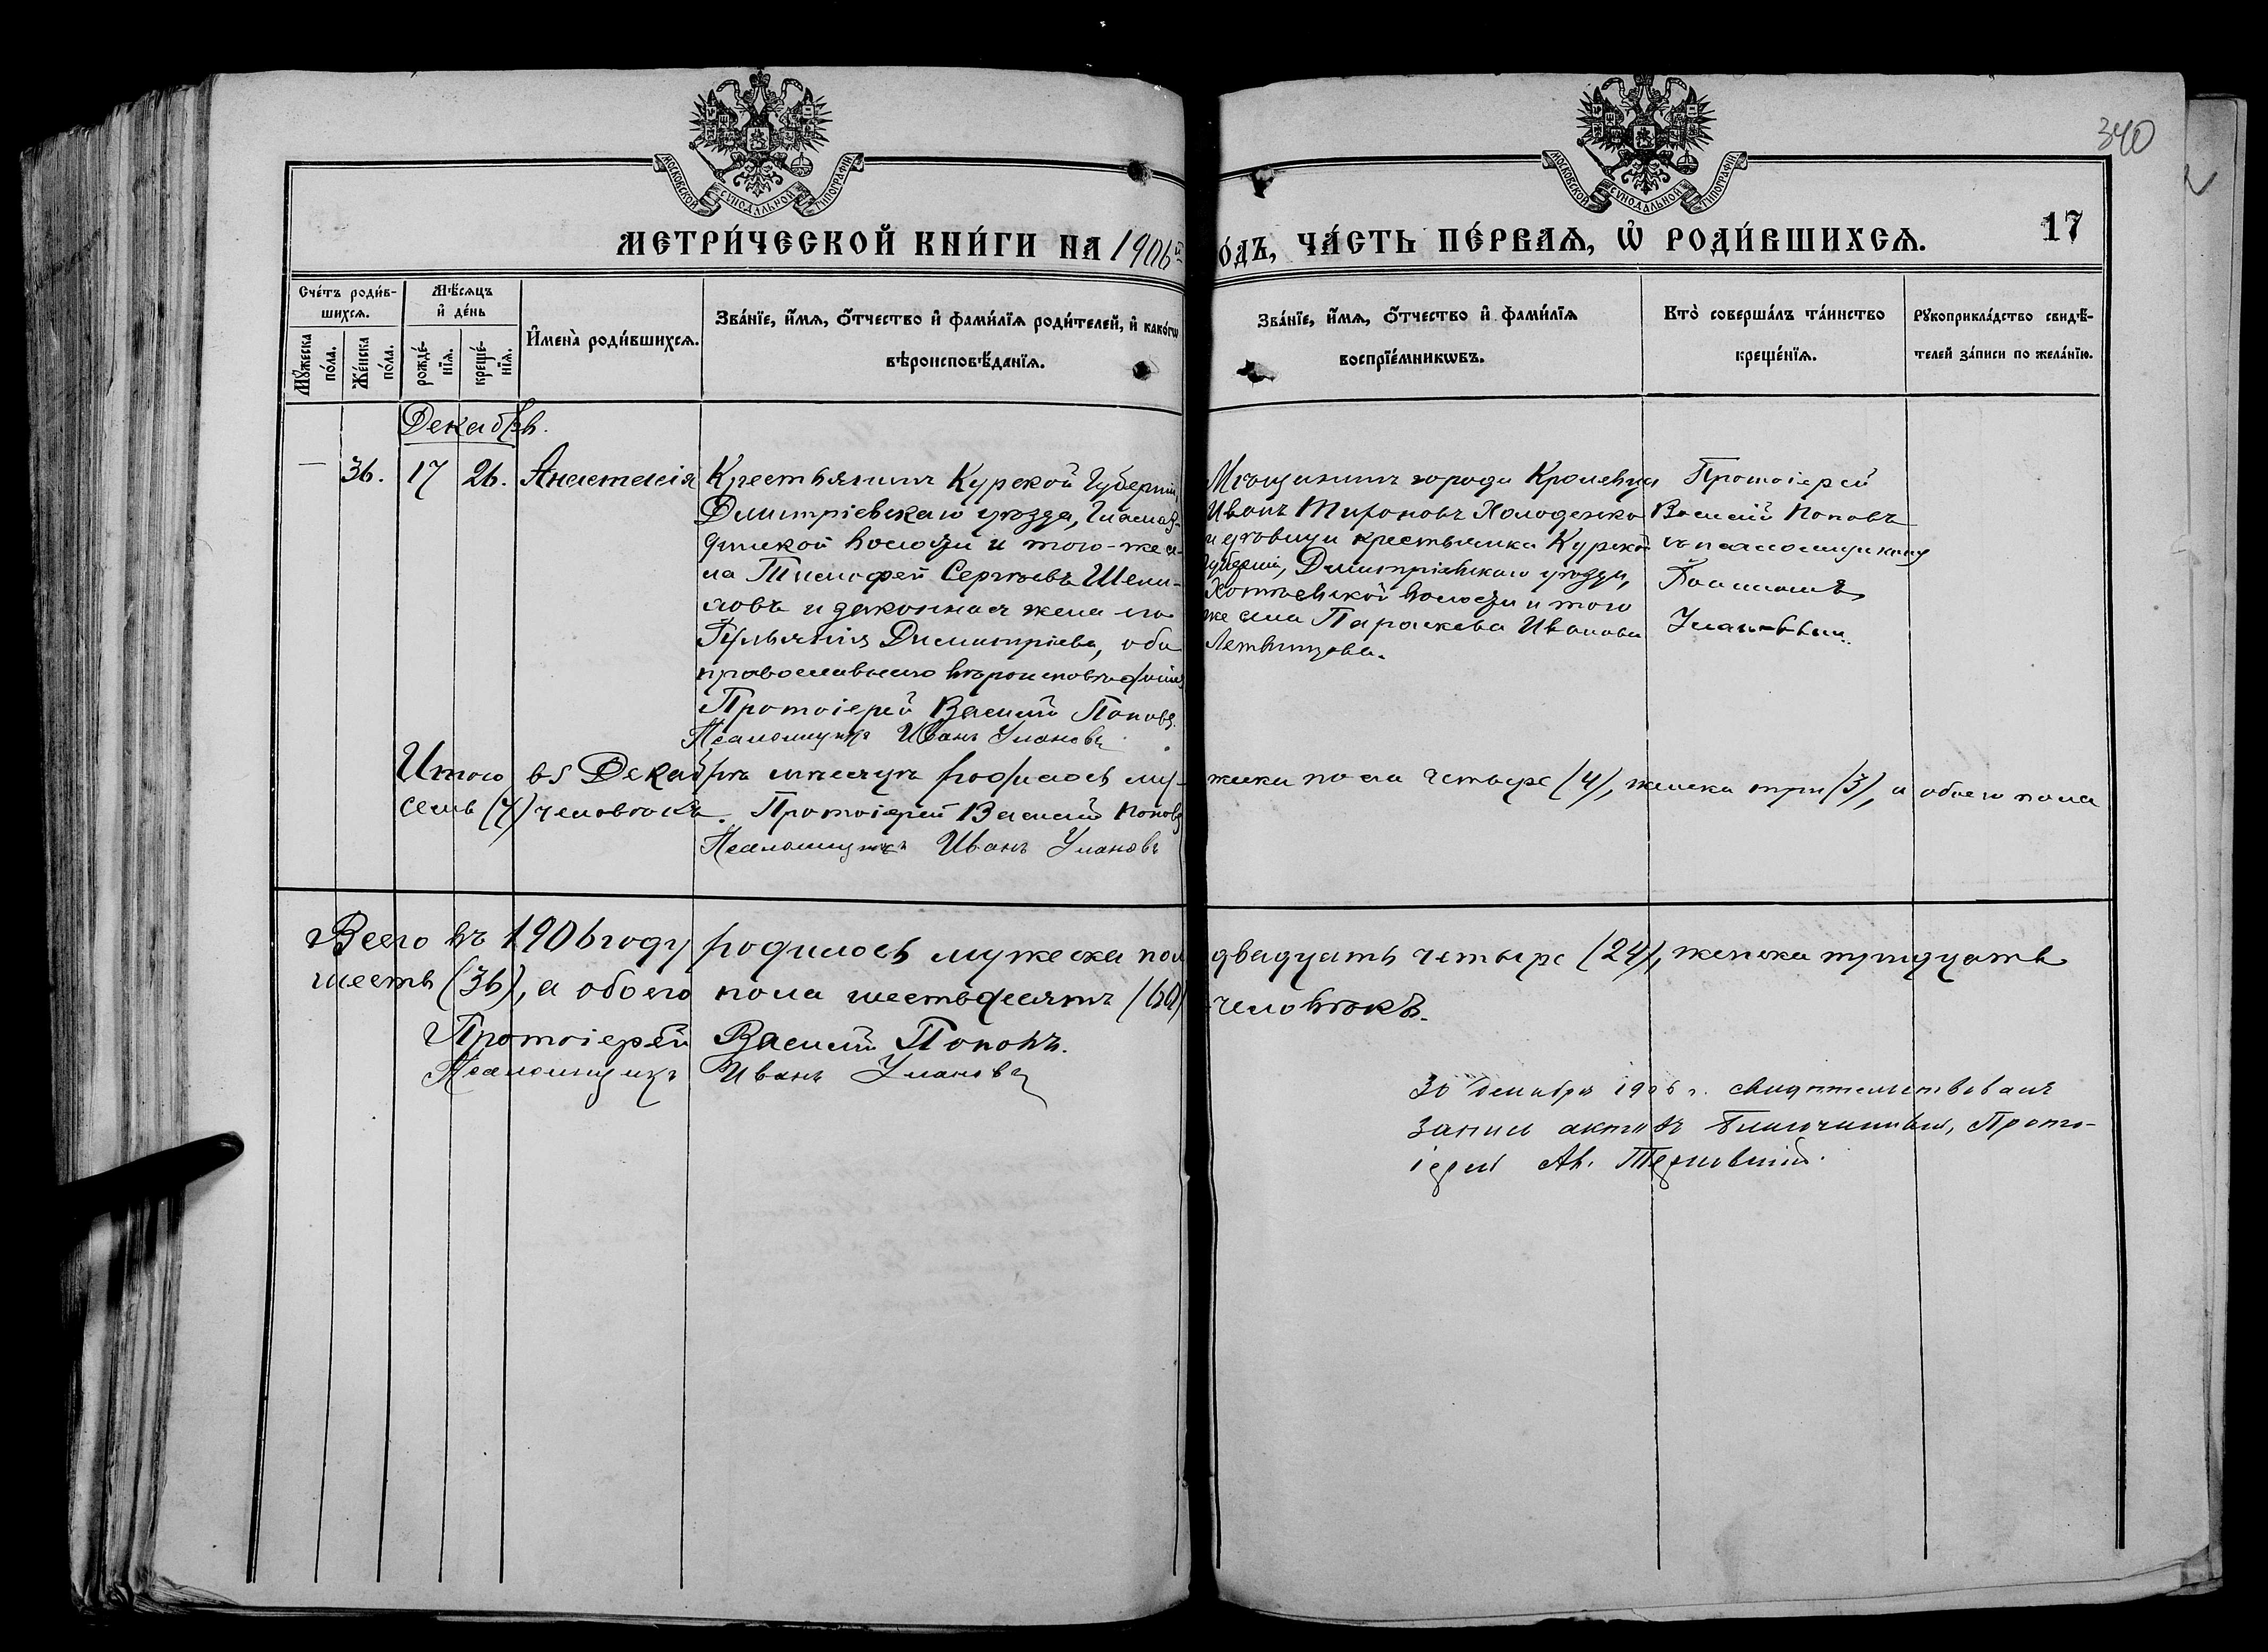 340
МОСКОВСКОЙ СУНОДАЛЬНОЙ ТИПОГРАФІИ
МОСКОВСКОЙ СУНОДАЛЬНОЙ ТИПОГРАФІИ
МЕТРИ́ЧЕСКОЙ КНИ́ГИ НА 1906й
О́ДЪ, ЧА́СТЬ ПЕ́РВАѦ, Ѡ РОДИ́ВШИХСѦ.
17
Сче́тъ роди́в-
шихсѧ.
Мѣ́сѧцъ
и де́нь
Мꙋ́жеска
по́ла.
Же́нска
по́ла.
рожде́-
нїѧ.
креще́-
нїѧ.
Имена̀ роди́вшихсѧ.
Зва́нїе, и́мѧ, ѻ́тчество и фами́лїѧ роди́телей, и како́гѡ
вѣроисповѣ́данїѧ.
Зва́нїе, и́мѧ, ѻ́тчество и фами́лїѧ
воспрїе́мникѡвъ.
Кто̀ соверша́лъ та́инство
креще́нїѧ.
Рꙋкоприкла́дство свидѣ́-
телей за́писи по жела́нїю.
Декабрь.
— 36. 17 26. Анастасія
Крестьянинъ Курской Губерніи,
Димитріевскаго уѣзда,
волости и того-же се-
ла Тимофей Сергѣевъ Шепи-
ловъ и законная жена его
Димитріева, оба
православнаго вѣроисповѣданія
Протоіерей Василій Поповъ.
Псаломщикъ Иванъ Улановъ
Мѣщанинъ города Кролевца
Иванъ Холоденко
и дѣвица крестьянка Курской
Губерніи, Димитріевскаго уѣзда,
волости и того
же села Параскева Иванова
Протоіерей
Василій Поповъ
съ псаломщикомъ
Улановымъ.
Итого въ Декабрѣ мѣсяцѣ родилось му- жеска пола четыре (4), женска три (3), а обоего пола
семь (7) человѣкъ. Протоіерей Василій Поповъ
Псаломщикъ Иванъ Улановъ
Всего въ 1906 году родилось мужеска пола двадцать четыре (24), женска тридцать
шесть (36), а обоего пола шестьдесятъ (60) человѣкъ.
Протоіерей Василій Поповъ.
Псаломщикъ Иванъ Улановъ
30 декабря 1906 г. свидѣтельствовалъ
запись актовъ Благочинный, Прото-
іерей Ал.